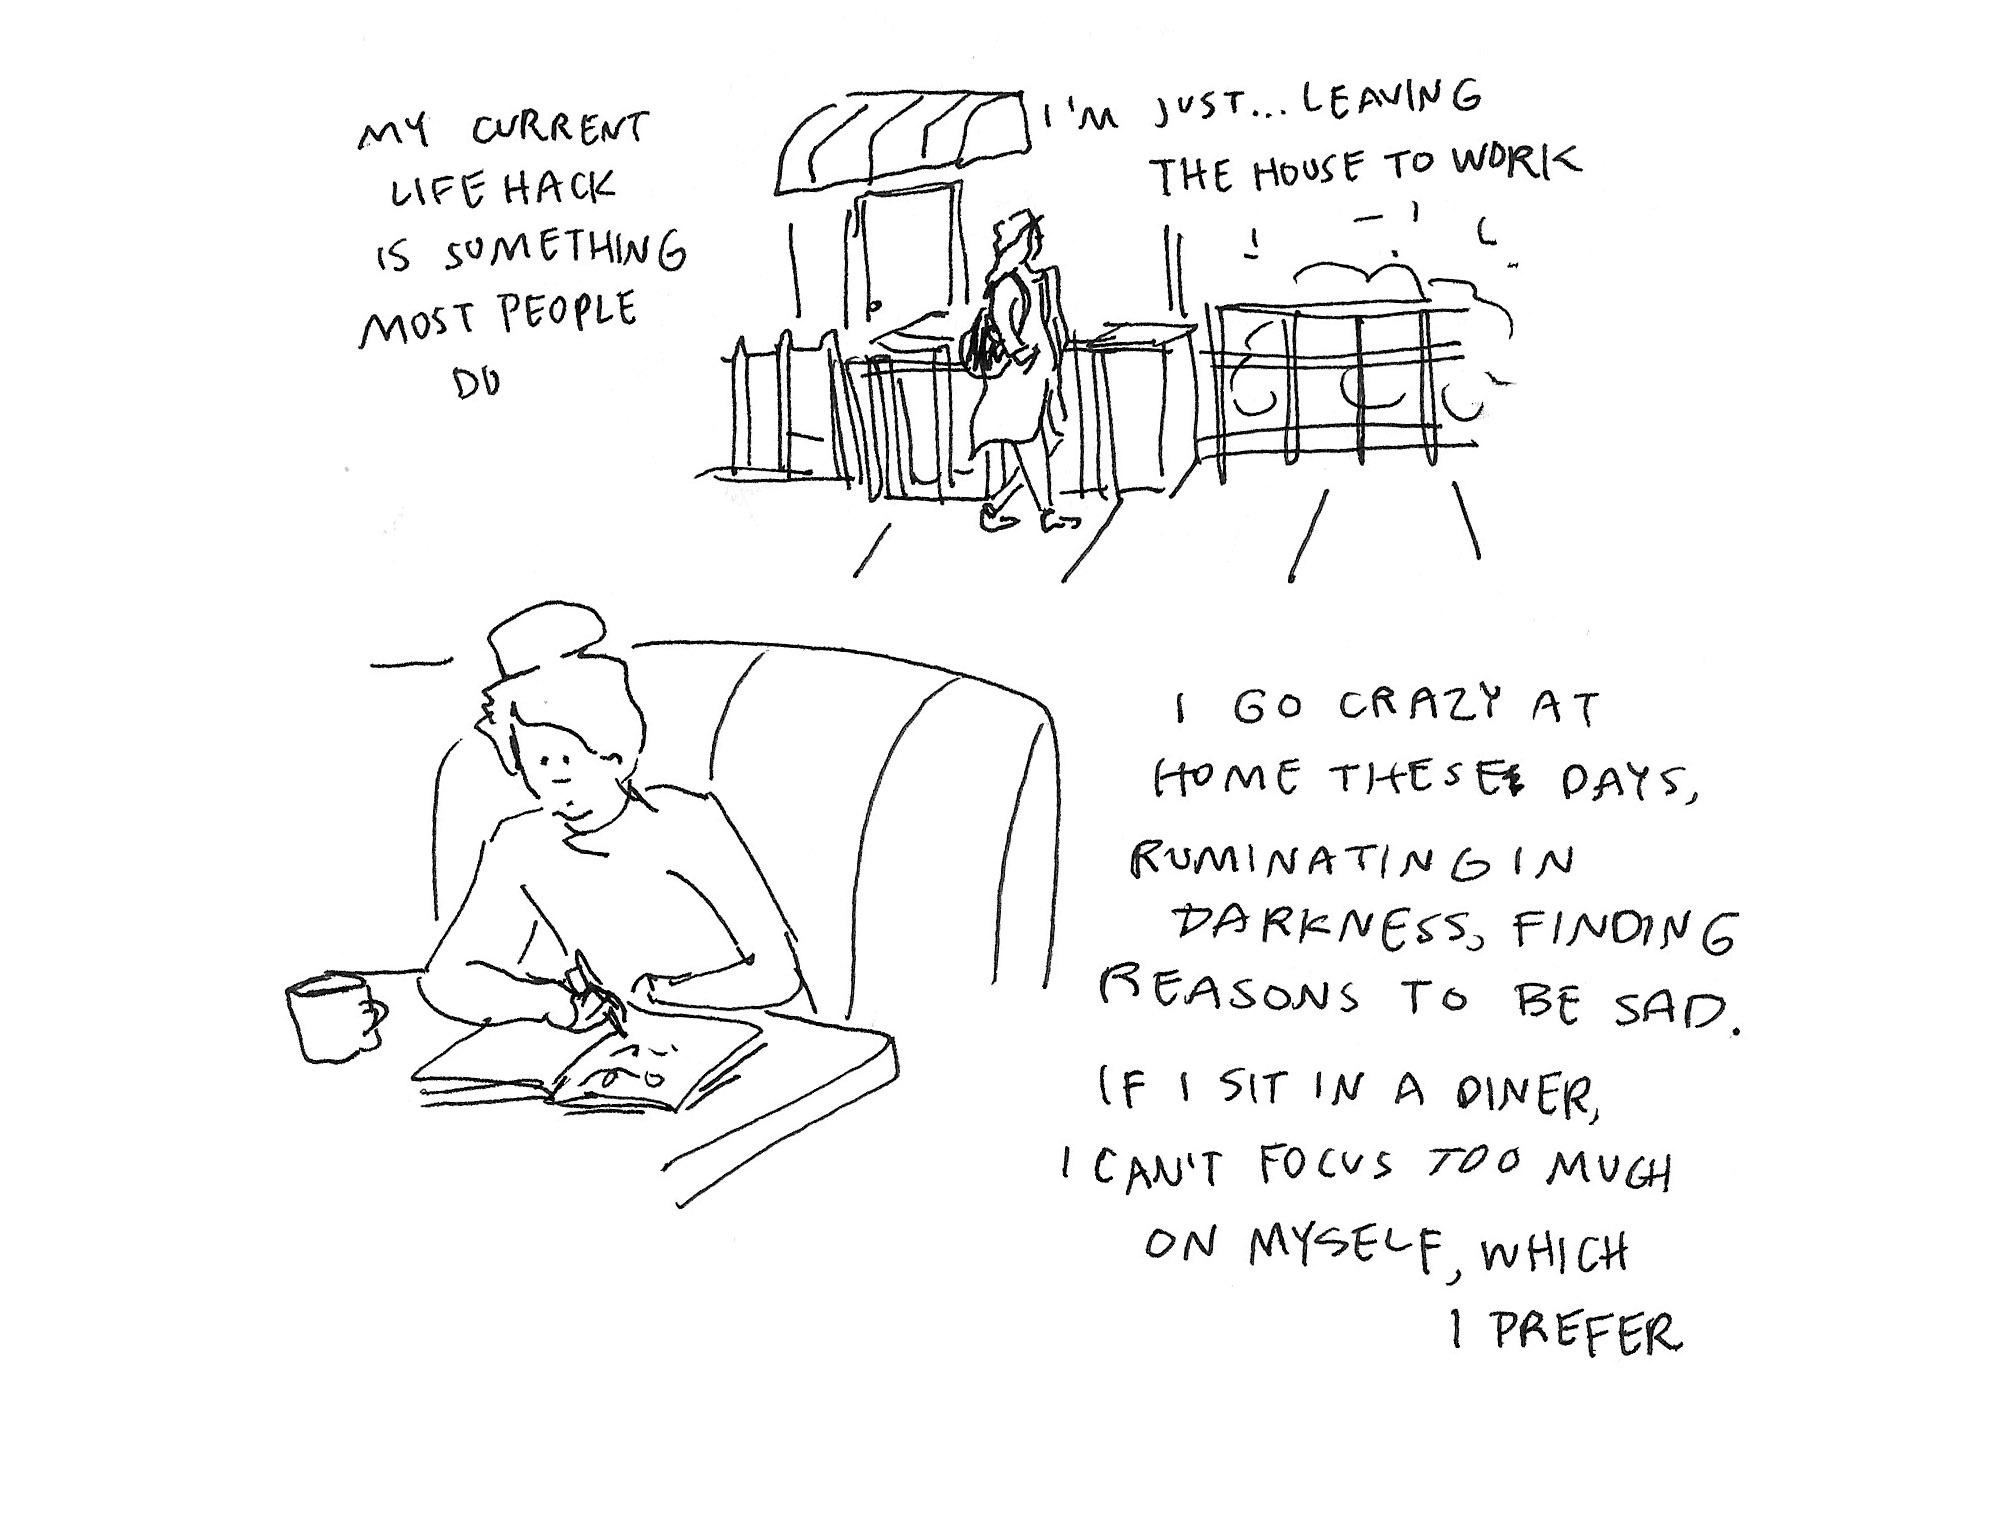 MY CURRENT
LIFE HACK
IS SOMETHING
MOST PEOPLE
DO
I'M JUST... LEAVING
THE HOUSE TO WORK
I GO CRAZY AT
HOME THESE DAYS,
RUMINATING IN
DARKNESS, FINDING
REASONS TO BE SAD.
IF I SIT IN A DINER,
I CAN'T FOCUS TOO MUCH
ON MYSELF, WHICH
I PREFER